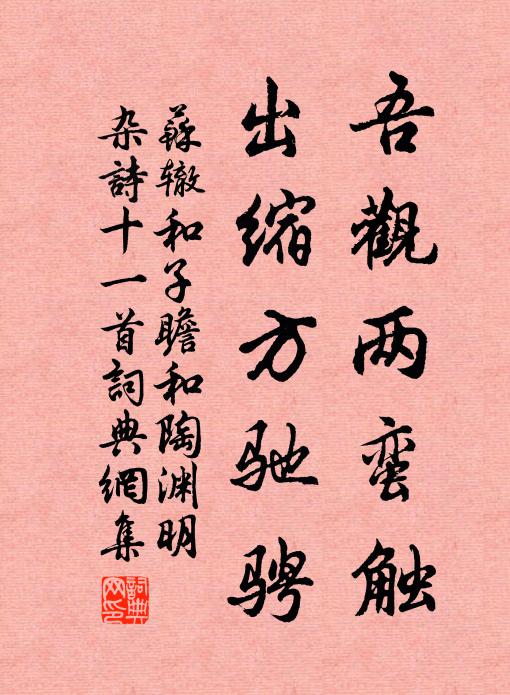 吾觀两蛮触
出缩方驰骋
蘇辙和子瞻和陶渊明
杂詩十一首詞典網集
詞典网印